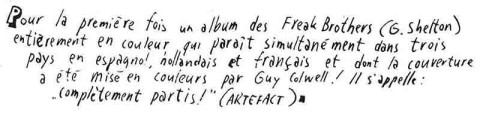 Pour la première fois un album des Freak Brothers (G. Shelton)
entièrement en couleur qui paraît simultanément dans trois
pays en espagnol, hollandais et français et dont la couverture
a été mise en couleurs par Guy Colwell! Il s'appelle:
"complètement partis!" (ARTEFACT)